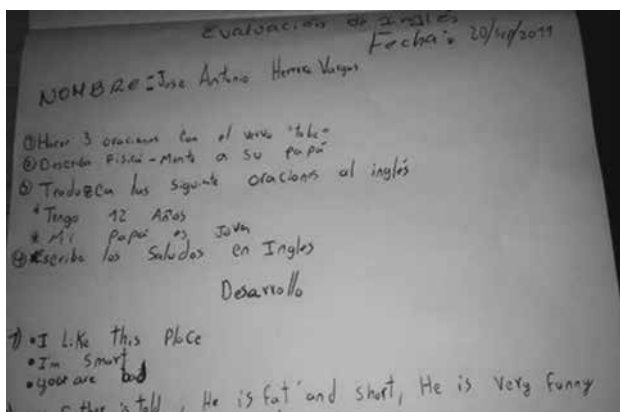 Evaluación de Inglés
Fecha: 20/sep/2011
NOMBRE: Jose Antonio Herrera Vargas
① Hacer 3 oraciones con el verbo "to be"
② Describa Fisica-Mente a su papá
③ Traduzca las siguiente oraciones al inglés
* Tengo 12 Años
* Mi papá es Joven
④ Escriba los Saludos en Ingles
Desarrollo
1) • I Like this Place
• I'm Smart
• you are bad
is told, He is fat and short, He is very funny